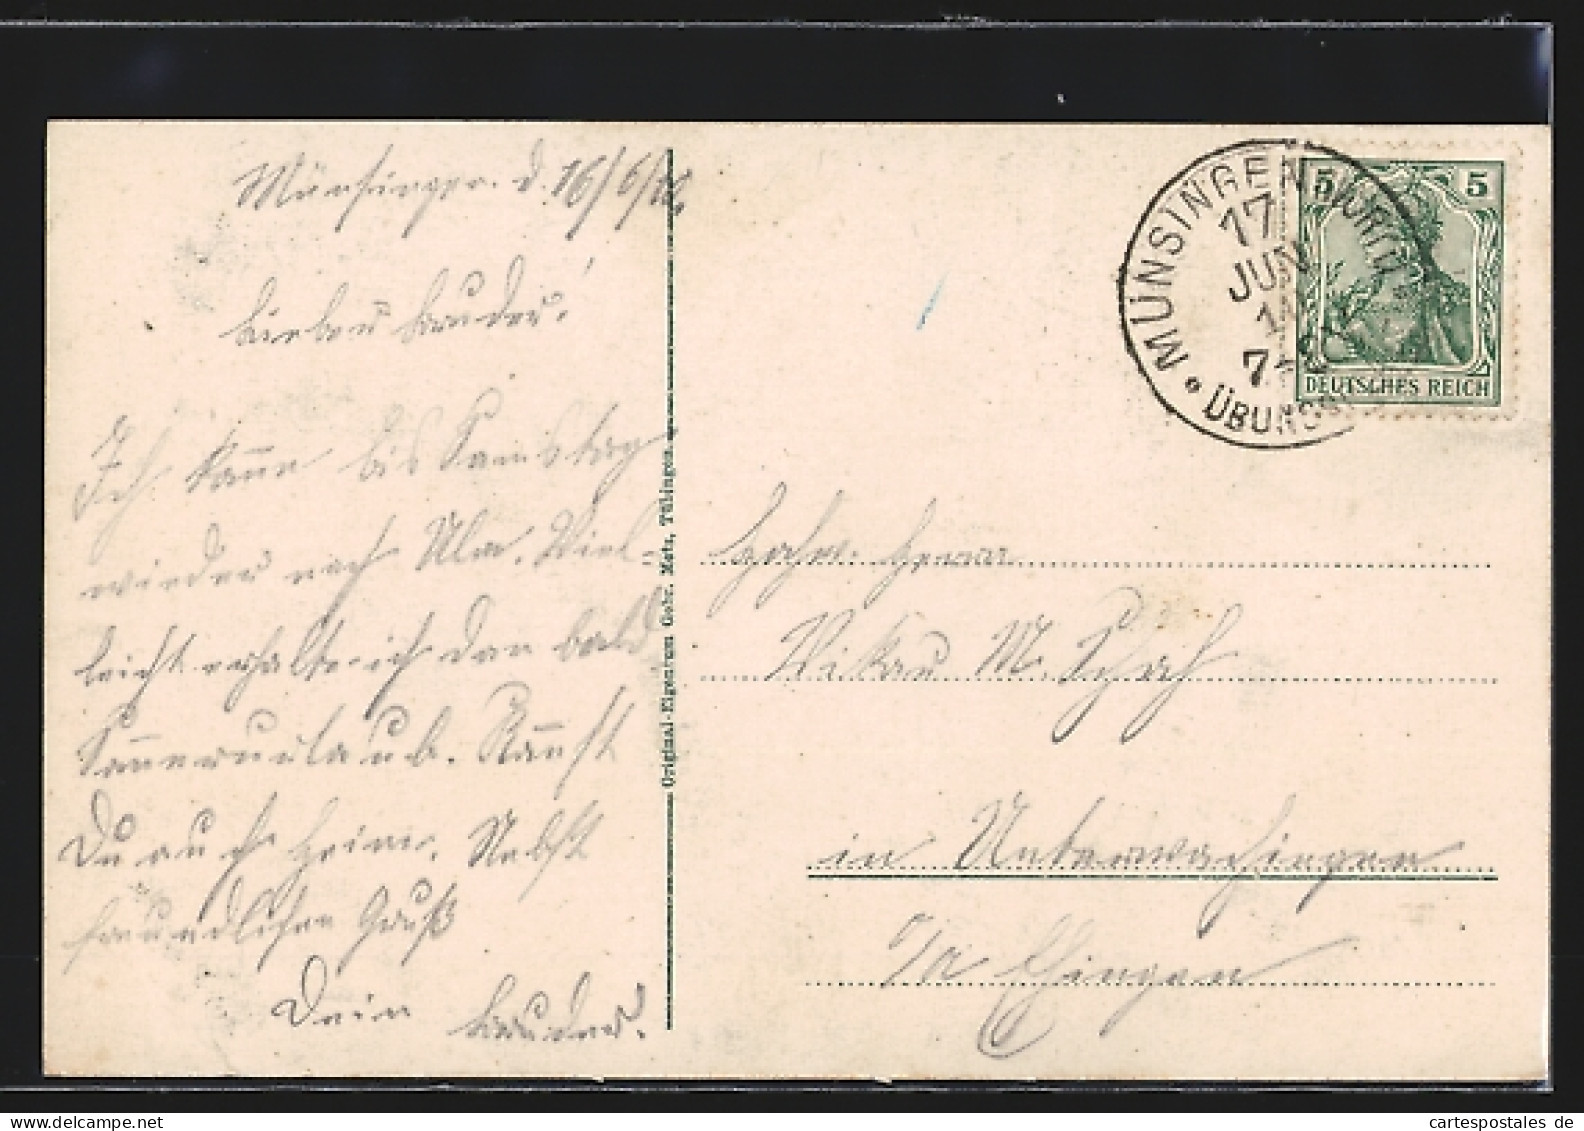 Münsingen. d. 16/6/
Lieber Bruder!
Ich kann bis Samstag
wieder nach Ulm. Viel-
leicht erhalte ich dan bald
urlaub. Kannst
Du auch heim. Nebst
freundlichen Gruß
Dein Bruder.
Original-Eigentum Gebr. Metz, Tübingen.
MÜNSINGEN WÜRTT
17
JUN
1
7
ÜBUNGS
5 5
DEUTSCHES REICH
Herrn
Vikar M. Schah
in Unterwachingen
O/A Ehingen
cartespostales de